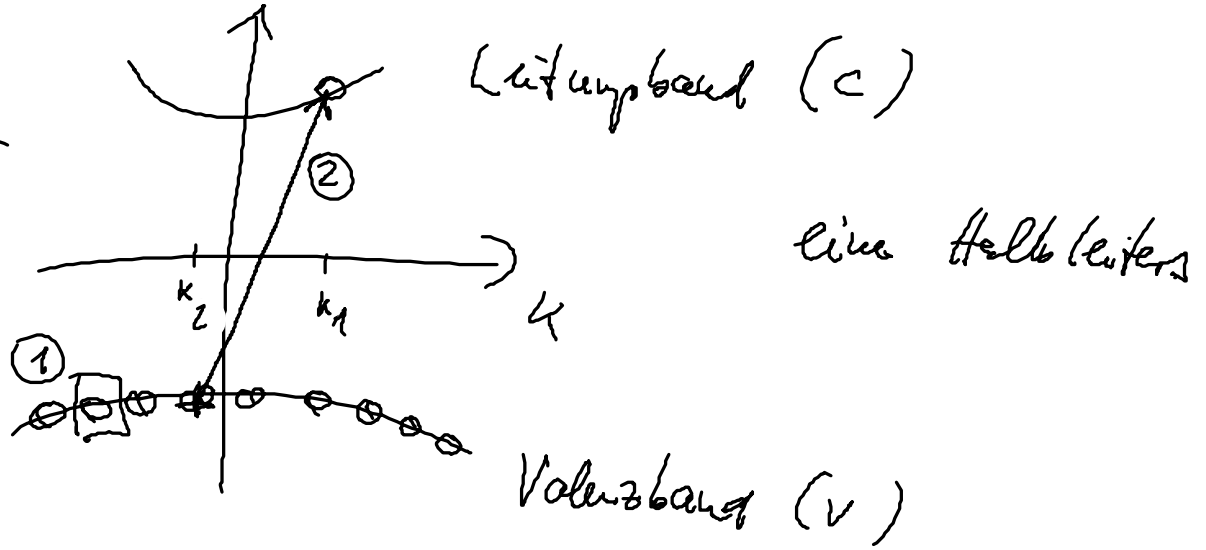 Leitungsband (c)
②
eines Halbleiters
k₂
k₁
k
①
Valenzband (v)